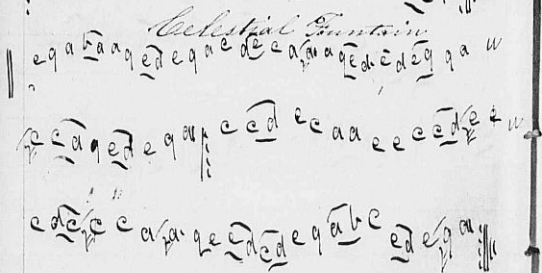 Celestial Fountain
e g a b a a g e d e g a c d e c a a a g e d c d e g g a
c c a g e d e g a c c d e c a a e e c c d e e
c d c c c a a g e c d c d e g a b c e d e g a